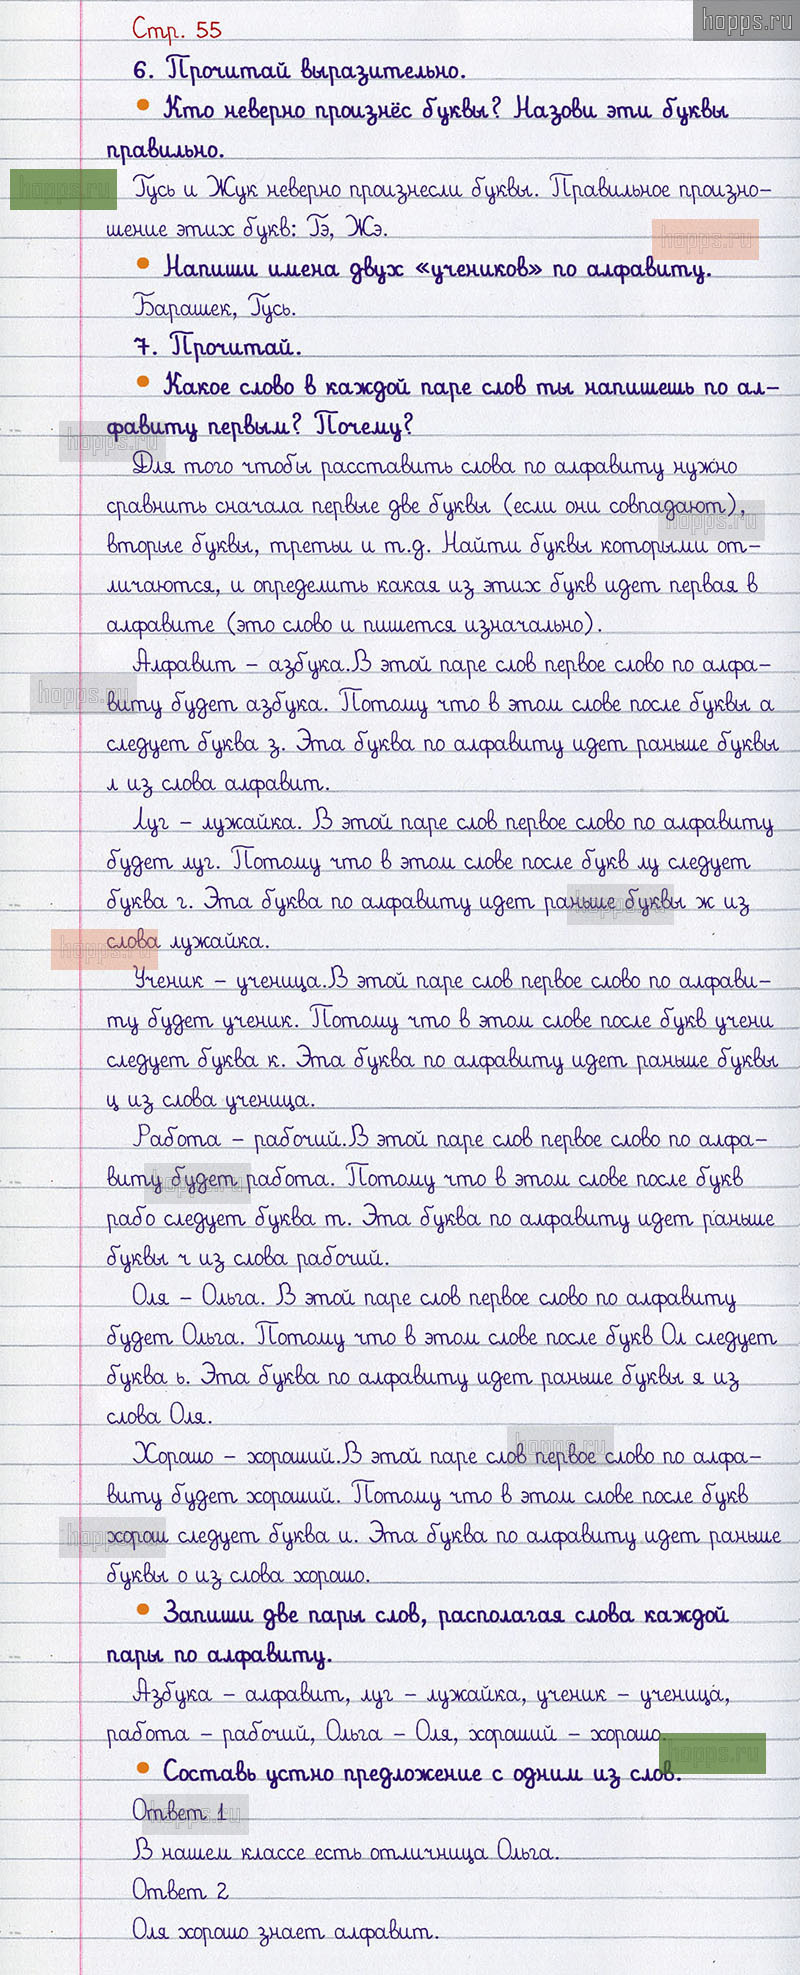 hopps.ru
Стр. 55
6. Прочитай выразительно.
• Кто неверно произнёс буквы? Назови эти буквы
правильно.
hopps.ru
Гусь и Жук неверно произнесли буквы. Правильное произно-
шение этих букв: Гэ, Жэ.
hopps.ru
• Напиши имена двух «учеников» по алфавиту.
Барашек, Гусь.
7. Прочитай.
• Какое слово в каждой паре слов ты напишешь по ал-
фавиту первым? Почему?
hopps.ru
Для того чтобы расставить слова по алфавиту нужно
сравнить сначала первые две буквы (если они совпадают),
hopps.ru
вторые буквы, третьи и т.д. Найти буквы которыми от-
личаются, и определить какая из этих букв идет первая в
алфавите (это слово и пишется изначально).
Алфавит - азбука.В этой паре слов первое слово по алфа-
hopps.ru
виту будет азбука. Потому что в этом слове после буквы а
следует буква з. Эта буква по алфавиту идет раньше буквы
л из слова алфавит.
Луг - лужайка. В этой паре слов первое слово по алфавиту
будет луг. Потому что в этом слове после букв лу следует
буква г. Эта буква по алфавиту идет раньше буквы ж из
hopps.ru
слова лужайка.
hopps.ru
Ученик - ученица.В этой паре слов первое слово по алфави-
ту будет ученик. Потому что в этом слове после букв учени
следует буква к. Эта буква по алфавиту идет раньше буквы
ц из слова ученица.
Работа - рабочий.В этой паре слов первое слово по алфа-
виту будет работа. Потому что в этом слове после букв
hopps.ru
рабо следует буква т. Эта буква по алфавиту идет раньше
буквы ч из слова рабочий.
Оля - Ольга. В этой паре слов первое слово по алфавиту
будет Ольга. Потому что в этом слове после букв Ол следует
буква ь. Эта буква по алфавиту идет раньше буквы я из
слова Оля.
Хорошо - хороший.В этой паре слов первое слово по алфа-
hopps.ru
виту будет хороший. Потому что в этом слове после букв
хорош следует буква и. Эта буква по алфавиту идет раньше
hopps.ru
буквы о из слова хорошо.
• Запиши две пары слов, располагая слова каждой
пары по алфавиту.
Азбука - алфавит, луг - лужайка, ученик - ученица,
работа - рабочий, Ольга - Оля, хороший - хорошо.
hopps.ru
• Составь устно предложение с одним из слов.
Ответ 1
hopps.ru
В нашем классе есть отличница Ольга.
Ответ 2
Оля хорошо знает алфавит.